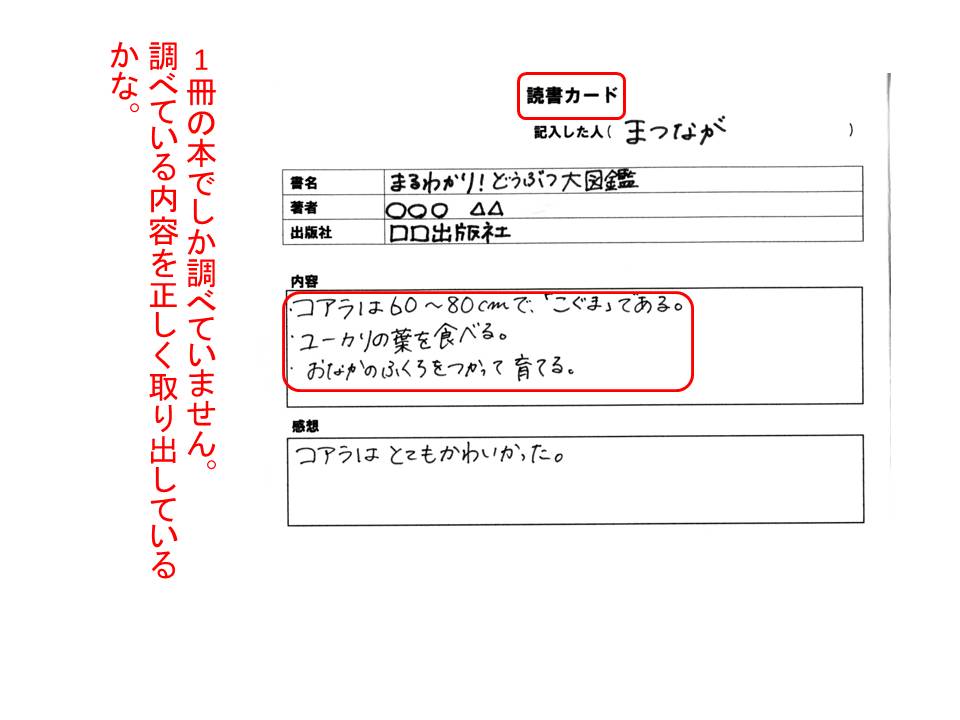 1冊の本でしか調べていません。
調べている内容を正しく取り出している
かな。
読書カード
記入した人( まつなが )
書名 まるわかり！どうぶつ大図鑑
著者 〇〇〇 △△
出版社 口口出版社
内容
・コアラは60〜80cmで、「こぐま」である。
・ユーカリの葉を食べる。
・おなかのふくろをつかって育てる。
感想
コアラはとてもかわいかった。